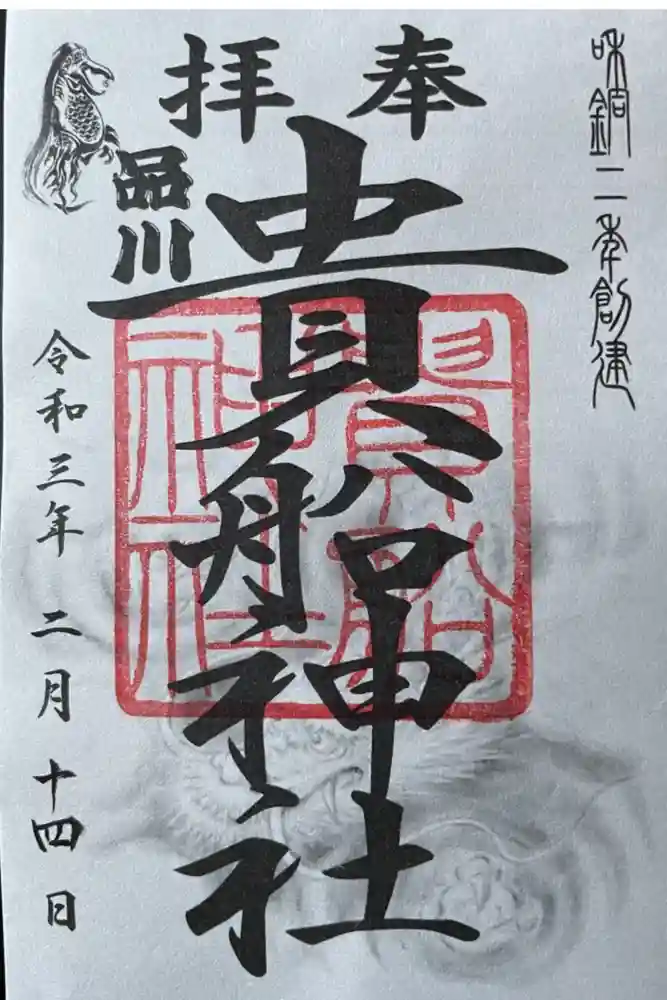 和銅二年創建
奉拝
貴船神社
貴船
神社
品川
令和三年 二月 十四日